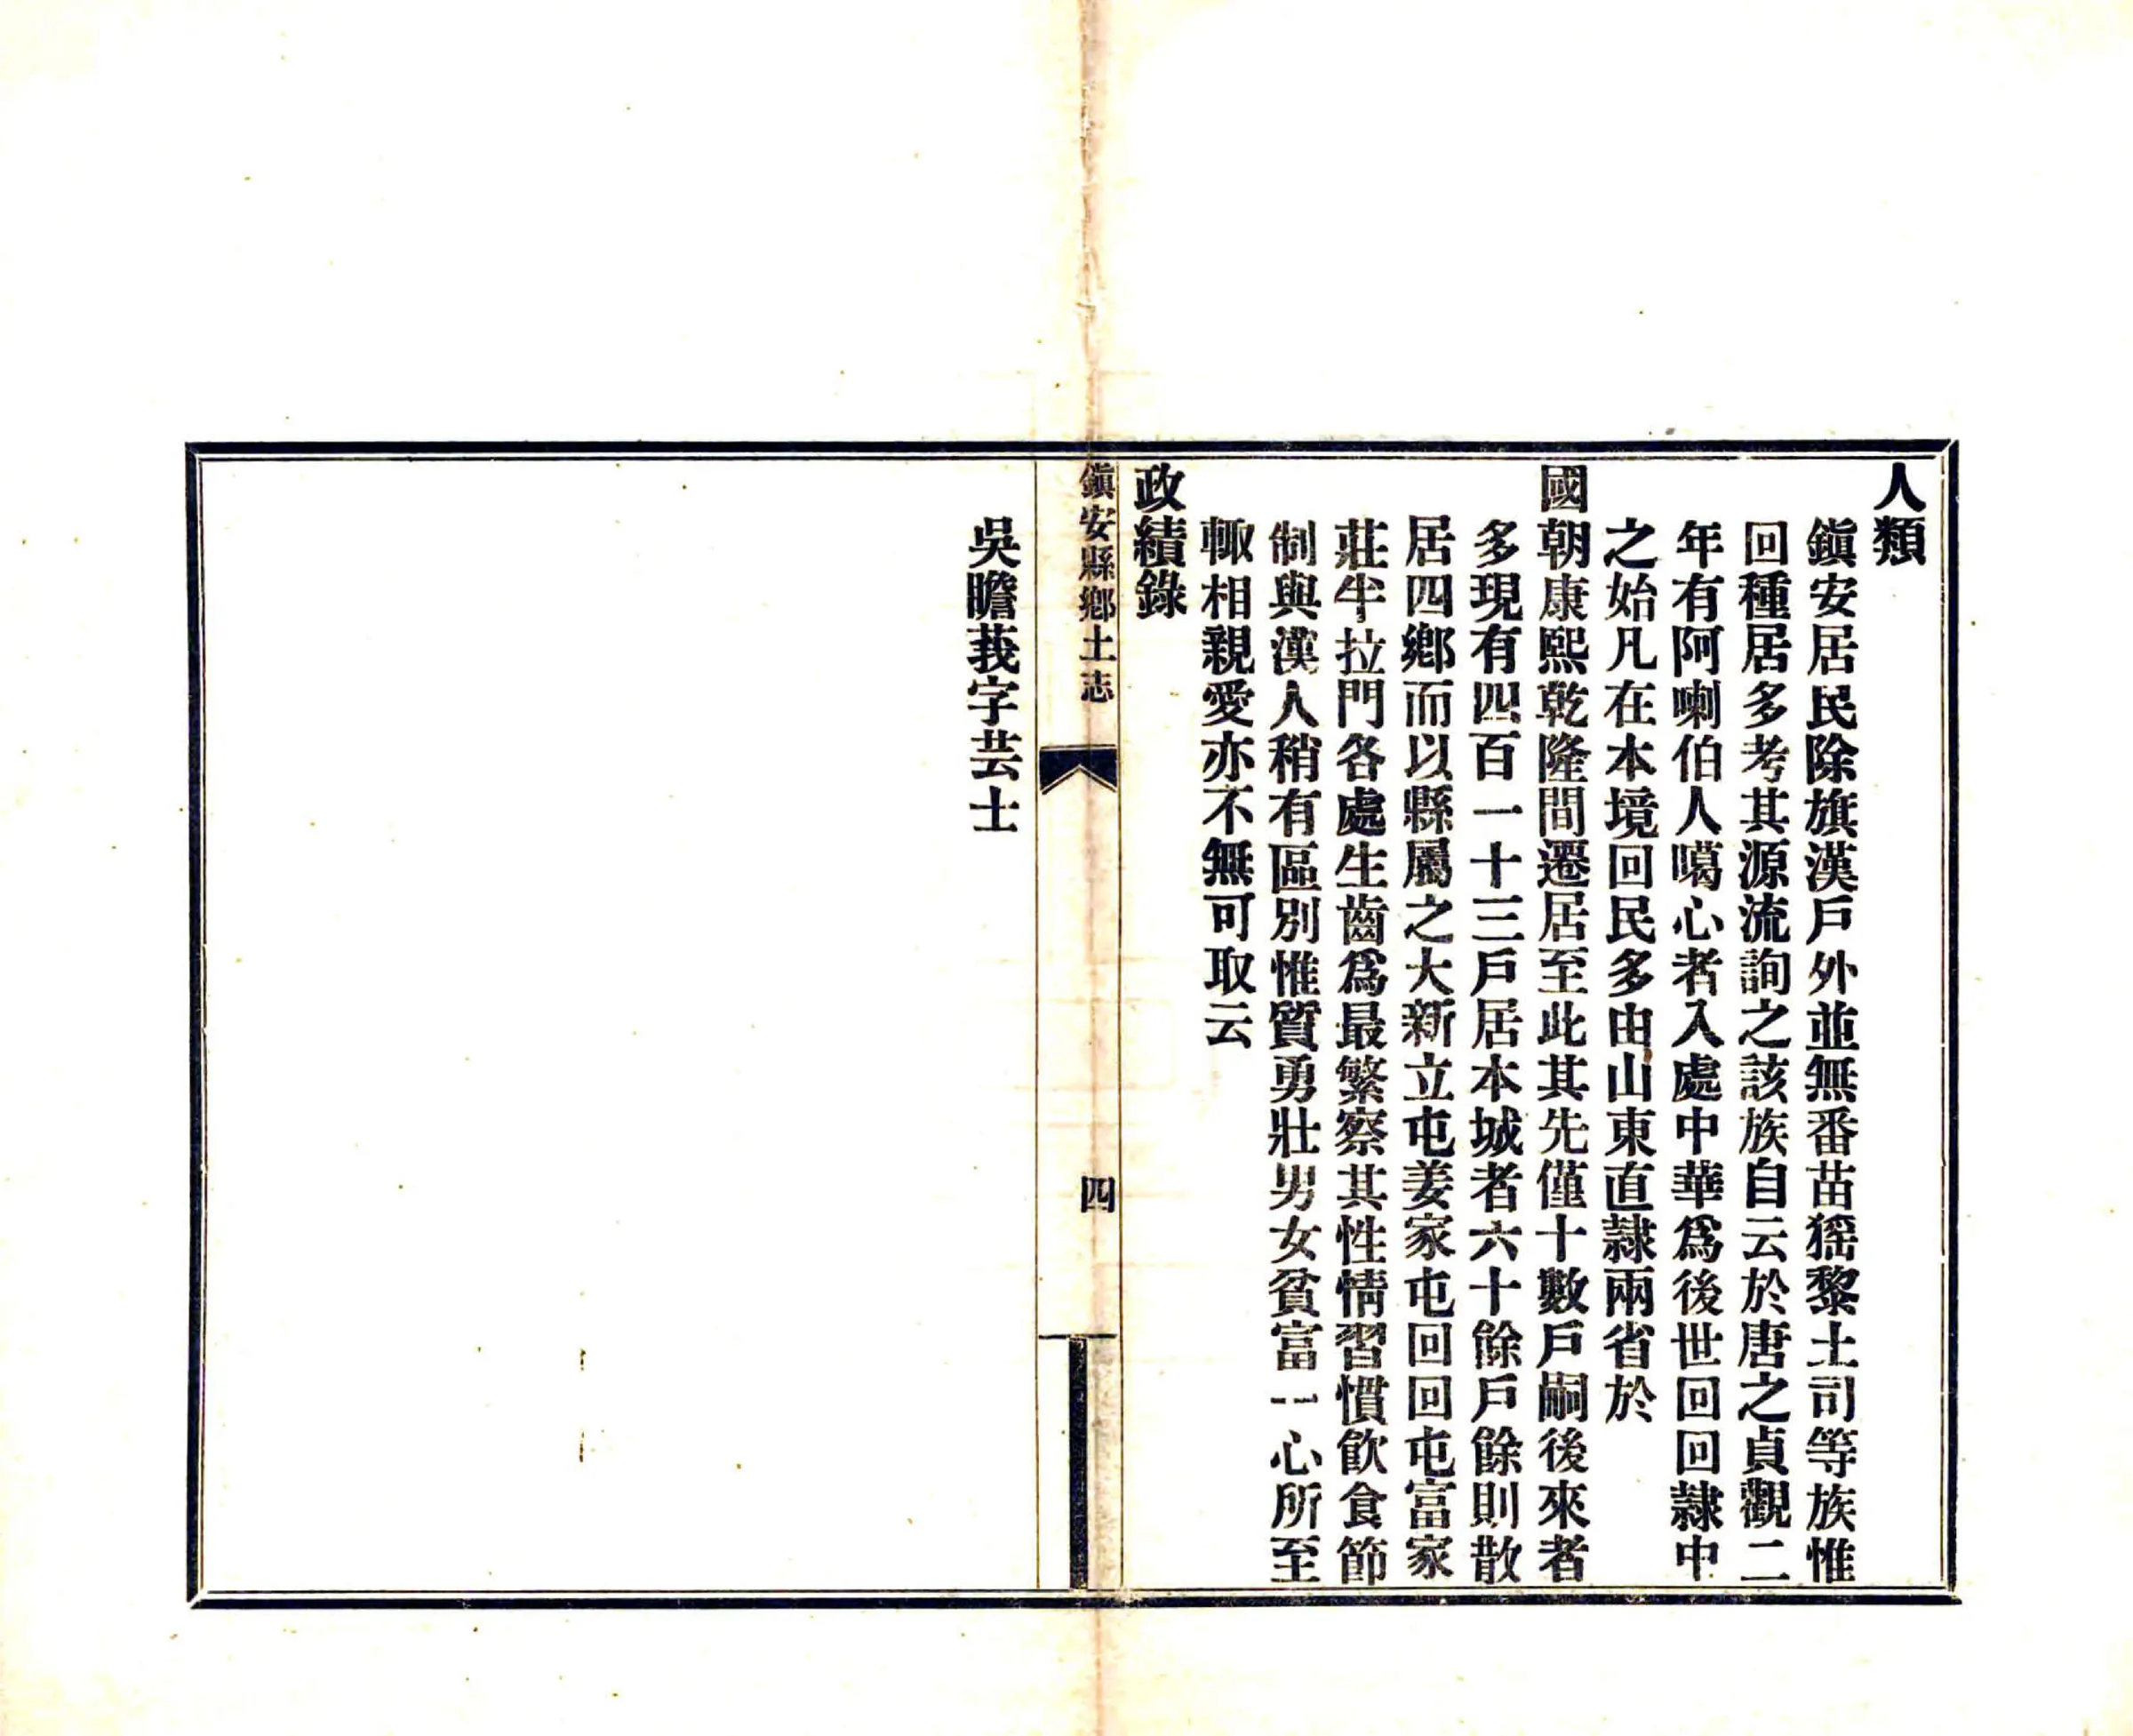 人類
鎭安居民除旗漢戶外並無番苗猺黎土司等族惟
回種居多考其源流詢之該族自云於唐之貞觀二
年有阿喇伯人噶心者入處中華爲後世回回隸中
之始凡在本境回民多由山東直隸兩省於
國朝康熙乾隆間遷居至此其先僅十數戶嗣後來者
多現有四百一十三戶居本城者六十餘戶餘則散
居四鄉而以縣屬之大新立屯姜家屯回回屯富家
莊牛拉門各處生齒爲最繁察其性情習慣飮食節
制與漢人稍有區別惟質勇壯男女貧富一心所至
輙相親愛亦不無可取云
政績錄
鎭安縣鄉土志
四
吳瞻莪字芸士